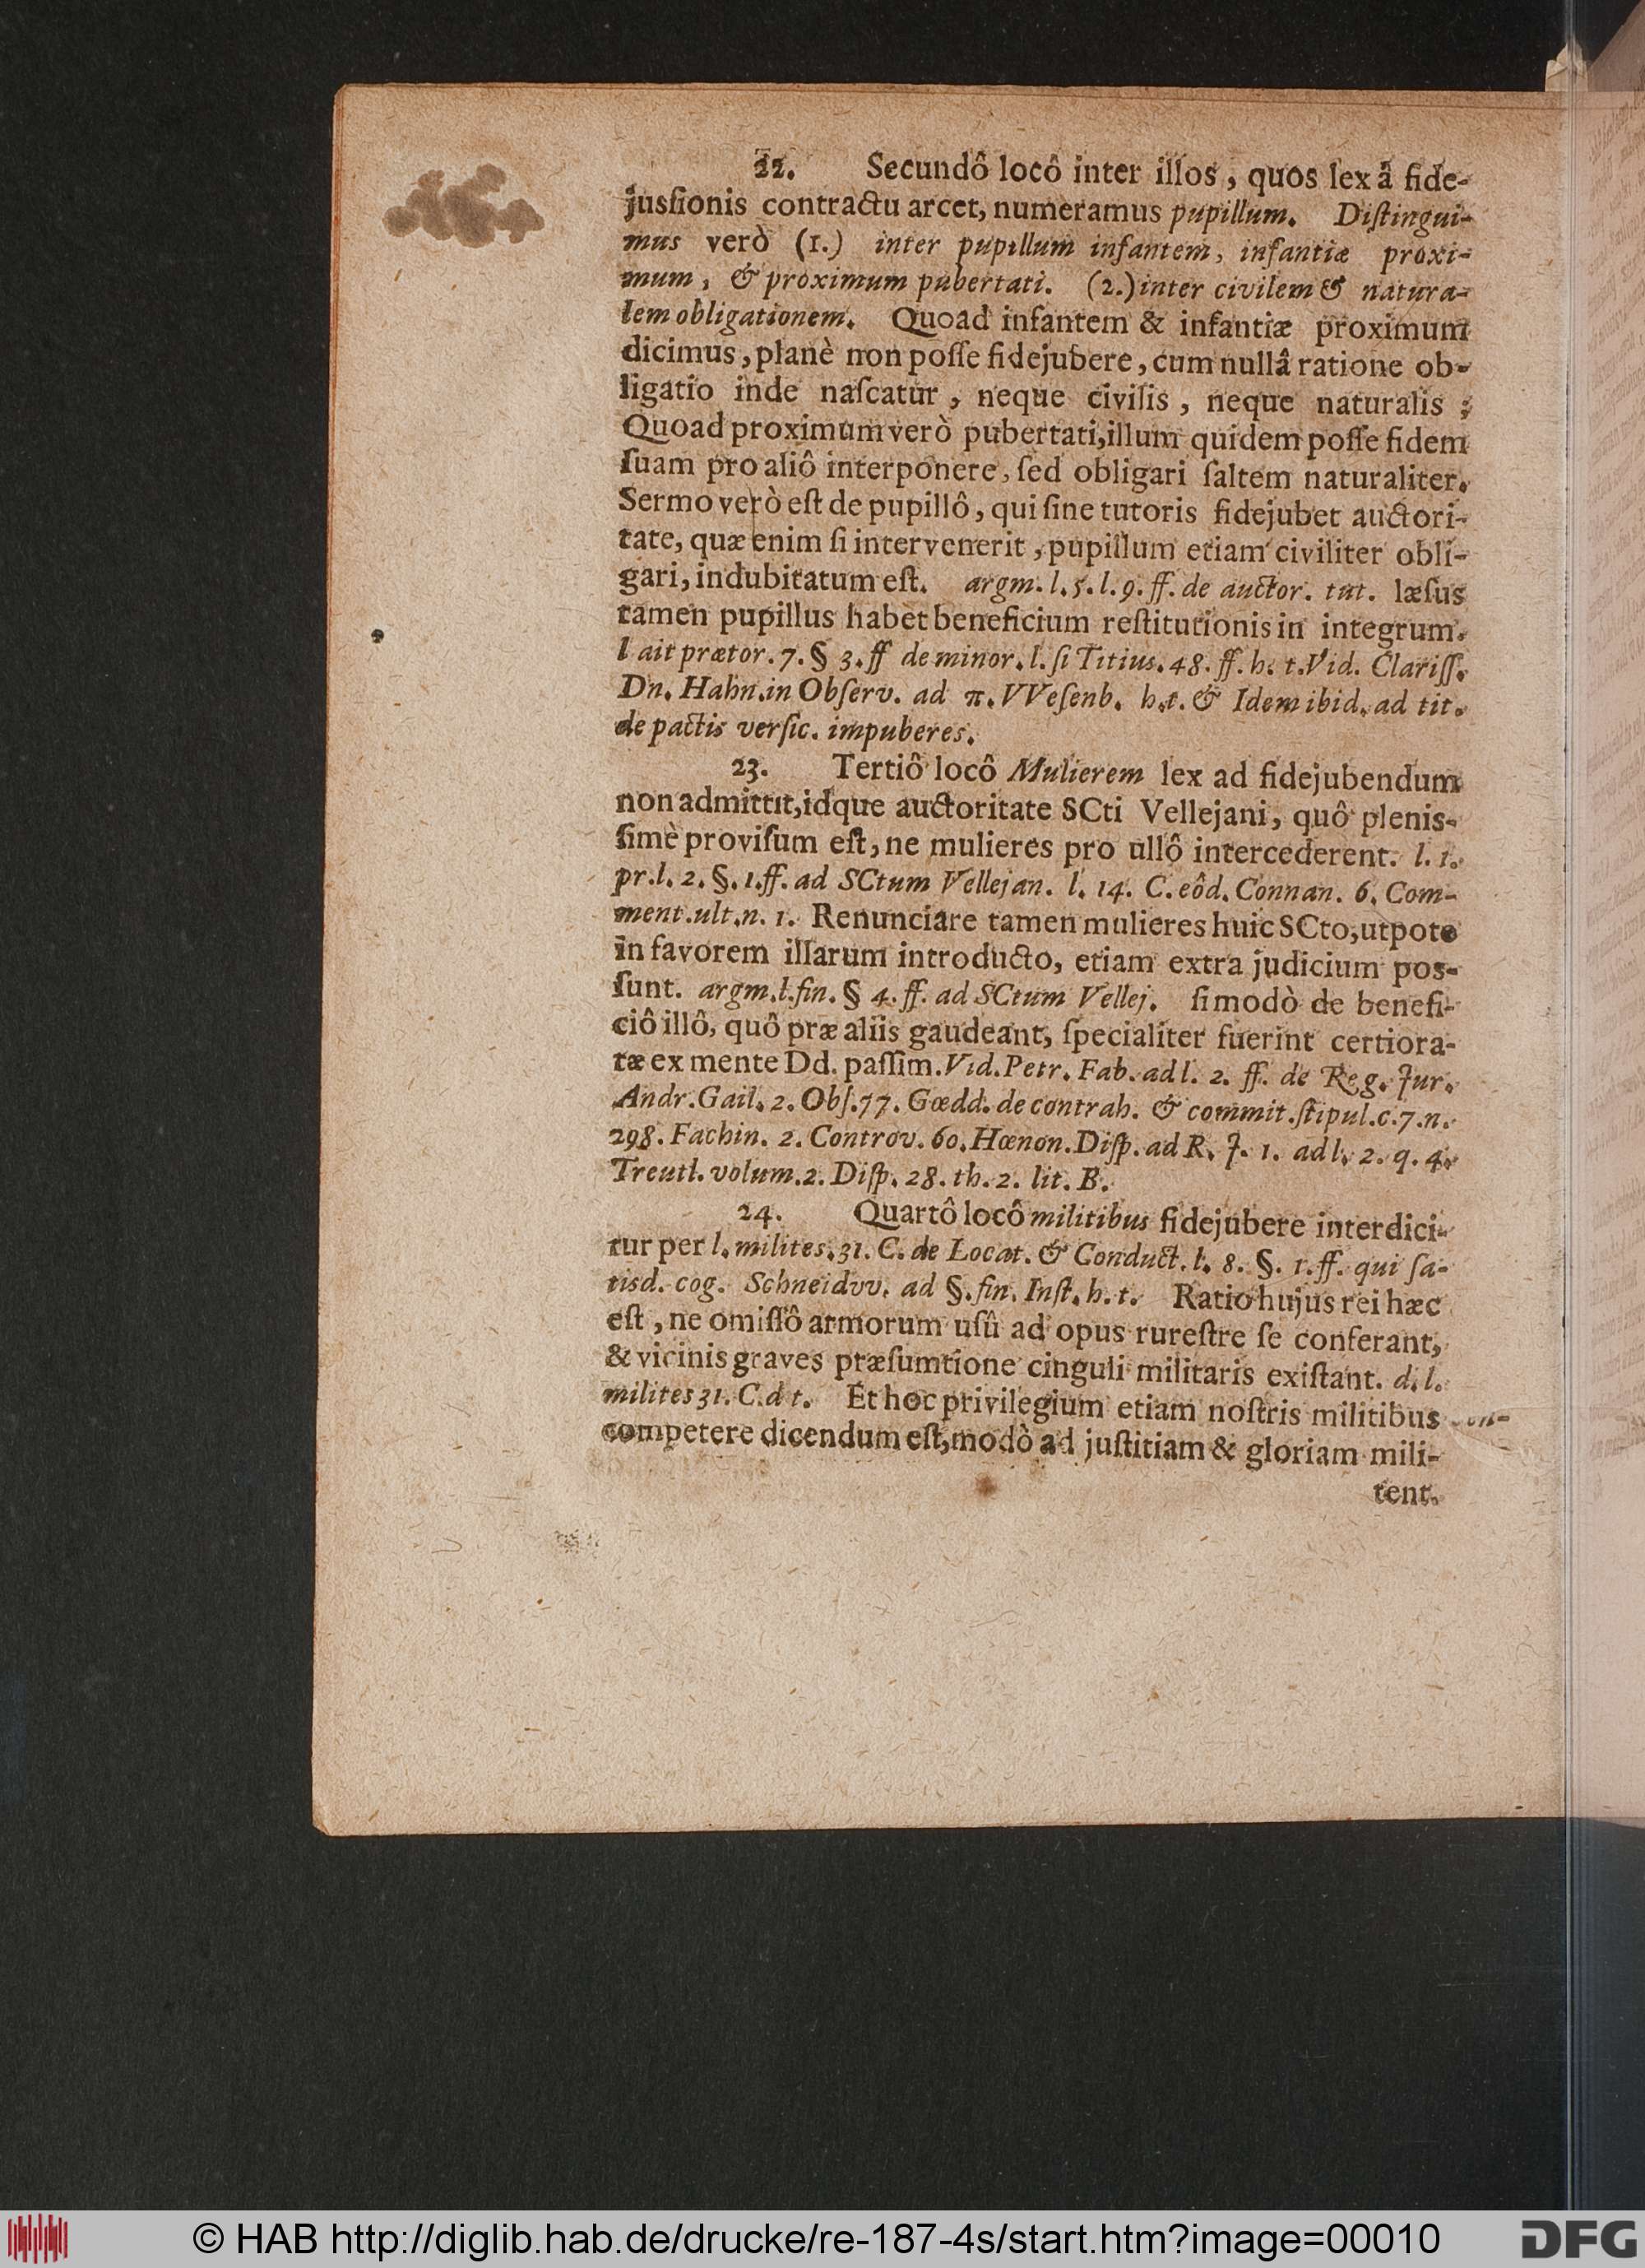 22. Secundô locô inter illos, quos lex â fide-
jusſionis contractu arcet, numeramus pupillum. Diſtingui-
mus verò (1.) inter pupillum infantem, infantiæ proxi-
mum, & proximum pubertati. (2.) inter civilem & natura-
lem obligationem. Quoad infantem & infantiæ proximum
dicimus, planè non poſſe fidejubere, cum nullâ ratione ob-
ligatio inde naſcatur, neque civilis, neque naturalis;
Quoad proximum verò pubertati, illum quidem poſſe fidem
ſuam pro aliô interponere, ſed obligari ſaltem naturaliter.
Sermo verò eſt de pupillô, qui ſine tutoris fidejubet auctori-
tate, quæ enim ſi intervenerit, pupillum etiam civiliter obli-
gari, indubitatum eſt. argm. l. 5. l. 9. ff. de auctor. tut. læſus
tamen pupillus habet beneficium reſtitutionis in integrum.
l ait prætor. 7. § 3. ff de minor. l. ſi Titius. 48. ff. h. t. Vid. Clariſſ.
Dn. Hahn. in Obſerv. ad π. VVeſenb. h. t. & Idem ibid. ad tit.
de pactis verſic. impuberes.
23. Tertiô locô Mulierem lex ad fidejubendum
non admittit, idque auctoritate SCti Vellejani, quô plenis-
ſimè proviſum eſt, ne mulieres pro ullô intercederent. l. 1.
pr. l. 2. §. 1. ff. ad SCtum Vellejan. l. 14. C. eôd. Connan. 6. Com-
ment. ult. n. 1. Renunciare tamen mulieres huic SCto, utpote
in favorem illarum introducto, etiam extra judicium pos-
ſunt. argm. l. fin. § 4. ff. ad SCtum Vellej. ſi modò de benefi-
ciô illô, quô præ aliis gaudeant, ſpecialiter fuerint certiora-
tæ ex mente Dd. paſſim. Vid. Petr. Fab. ad l. 2. ff. de Reg. Jur.
Andr. Gail. 2. Obſ. 77. Gœdd. de contrah. & commit. ſtipul. c. 7. n.
298. Fachin. 2. Controv. 60. Hœnon. Diſp. ad R. J. 1. ad l. 2. q. 4.
Treutl. volum. 2. Diſp. 28. th. 2. lit. B.
24. Quartô locô militibus fidejubere interdici-
tur per l. milites. 31. C. de Locat. & Conduct. l. 8. §. 1. ff. qui ſa-
tisd. cog. Schneidvv. ad §. fin. Inſt. h. t. Ratio hujus rei hæc
eſt, ne omiſſô armorum uſû ad opus rureſtre ſe conferant,
& vicinis graves præſumtione cinguli militaris exiſtant. d. l.
milites 31. C. d t. Et hoc privilegium etiam noſtris militibus
competere dicendum eſt, modò ad juſtitiam & gloriam mili-
tent.
© HAB http://diglib.hab.de/drucke/re-187-4s/start.htm?image=00010
DFG